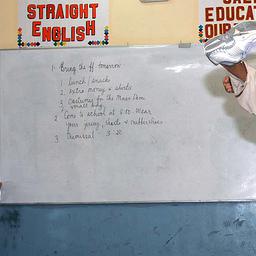 STRAIGHT
ENGLISH
EDUCAT
OUR
1. Bring the ff tomorrow
1. Lunch / snack
2. Extra money & shirts
3. Costume for the Mass Dem
small bag
2. Come to school at 6:00. Wear
your jersey, shorts & rubber shoes
3. Dismissal - 3:20